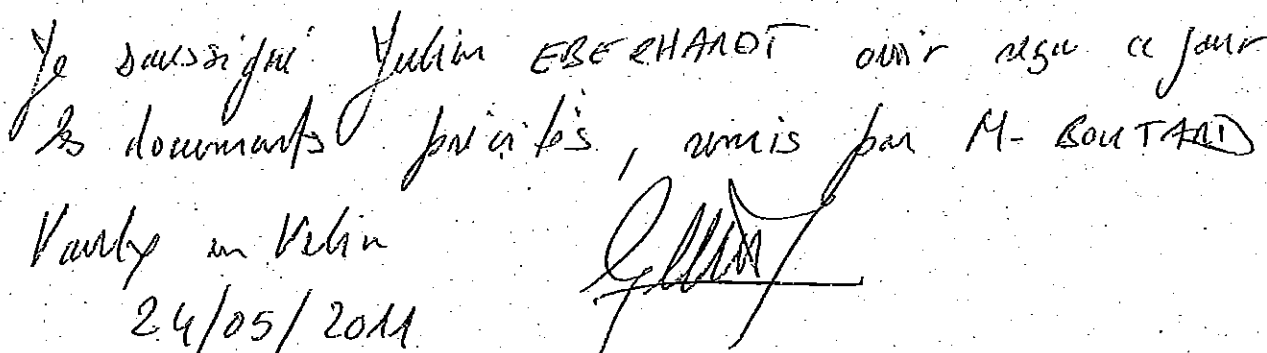 Je soussigné Julien EBERHARDT avoir reçu ce jour
les documents précités, remis par M. BOUTARD
Vaulx en Velin
24/05/2011